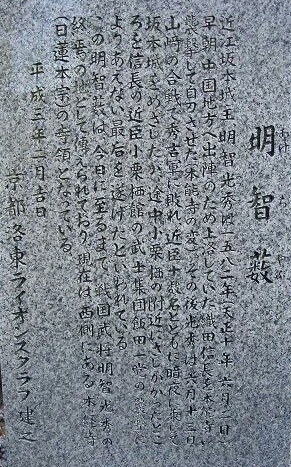 明智藪
近江坂本城主明智光秀は一五八二年(天正十年)六月二日
早朝中国地方へ出陣のため上洛していた織田信長を本能寺に
襲撃して自刃させた(本能寺の変)。その後光秀は六月十三日
山崎の合戦で秀吉軍に敗れ近臣十数名とともに暗夜に乗じて
坂本城をめざしたが、途中小栗栖の附近にさしかかったとこ
ろを信長の近臣小栗栖館の武士集団飯田一党の襲撃に
よりあえない最後を遂げたといわれている。
この明智藪は、今日に至るまで、戦国武将明智光秀の
終焉の地として伝えられており現在は西側にある本経寺
(日蓮本宗)の寺領となっている。
平成三年二月吉日
京都 洛東ライオンズクラブ 建之